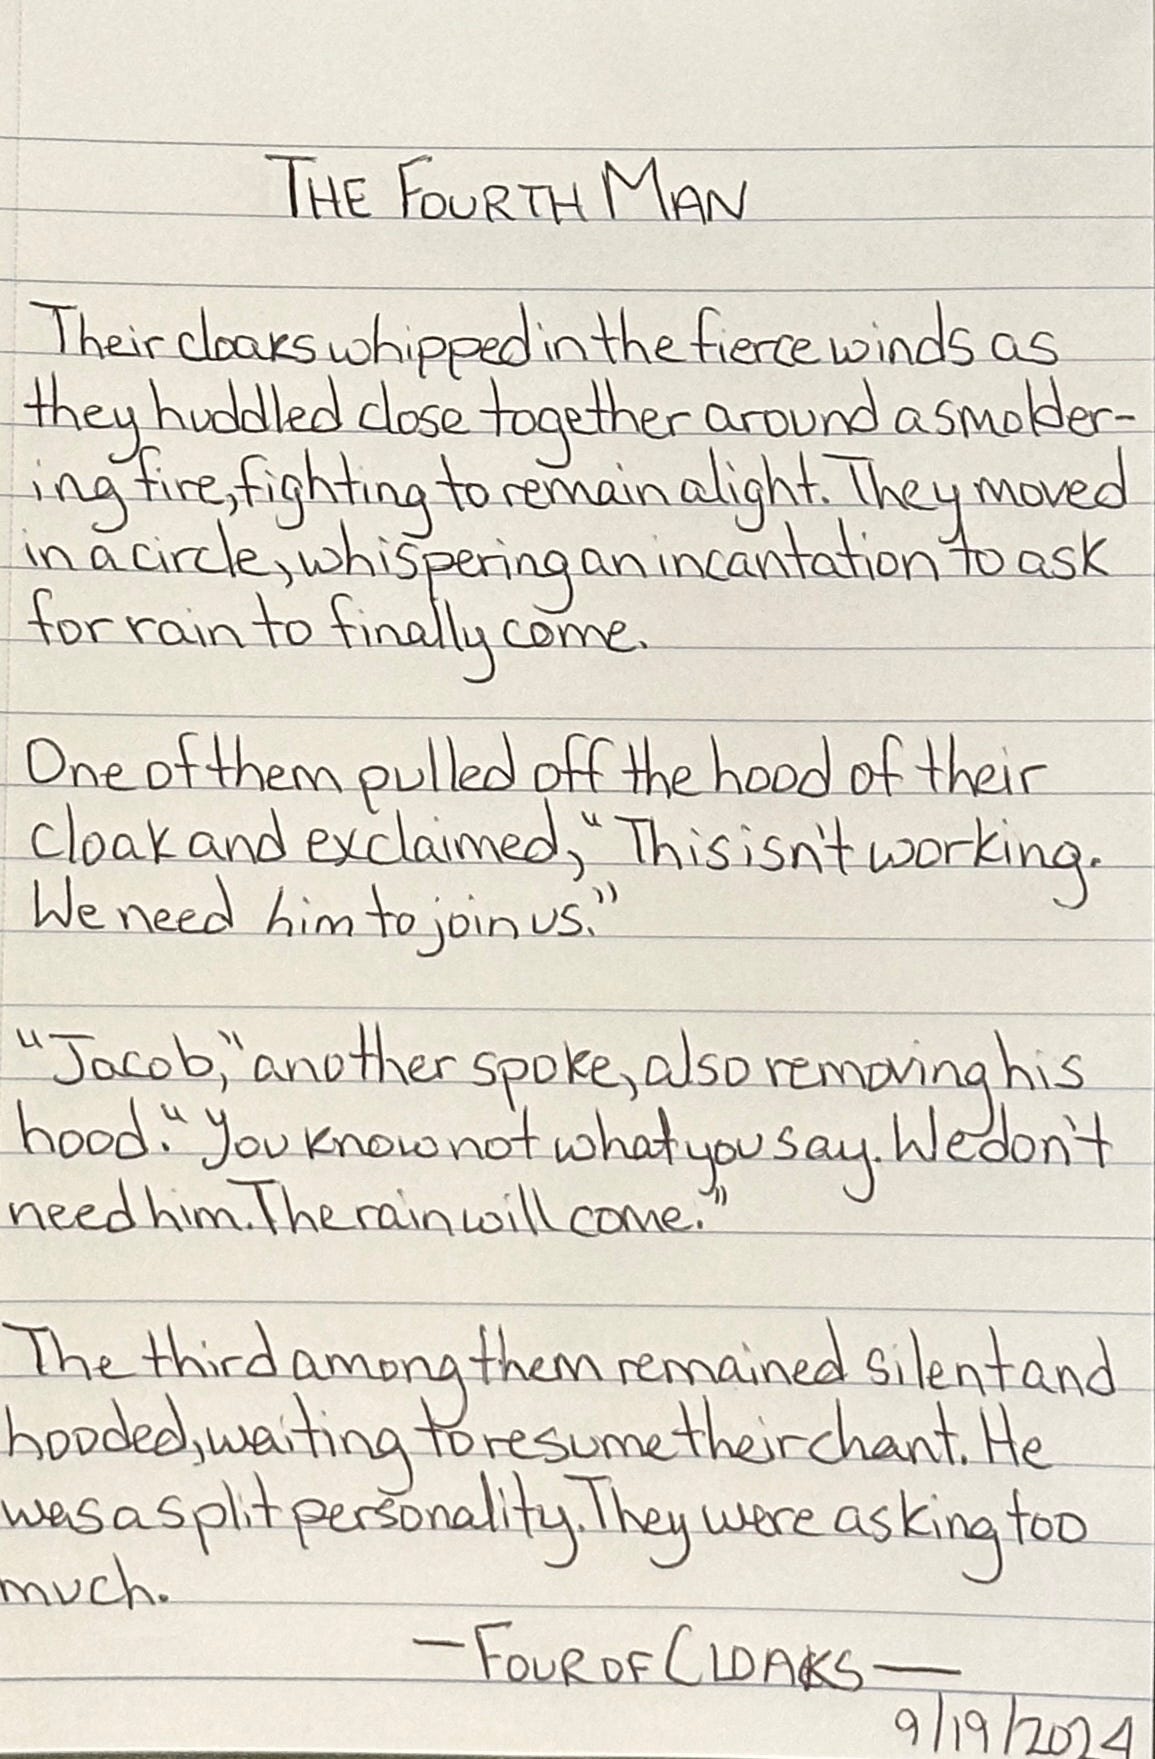 THE FOURTH MAN
Their cloaks whipped in the fierce winds as
they huddled close together around a smolder-
ing fire, fighting to remain alight. They moved
in a circle, whispering an incantation to ask
for rain to finally come.
One of them pulled off the hood of their
cloak and exclaimed, "This isn't working.
We need him to join us."
"Jacob," another spoke, also removing his
hood. "You know not what you say. We don't
need him. The rain will come."
The third among them remained silent and
hooded, waiting to resume their chant. He
was a split personality. They were asking too
much.
— FOUR OF CLOAKS —
9/19/2024